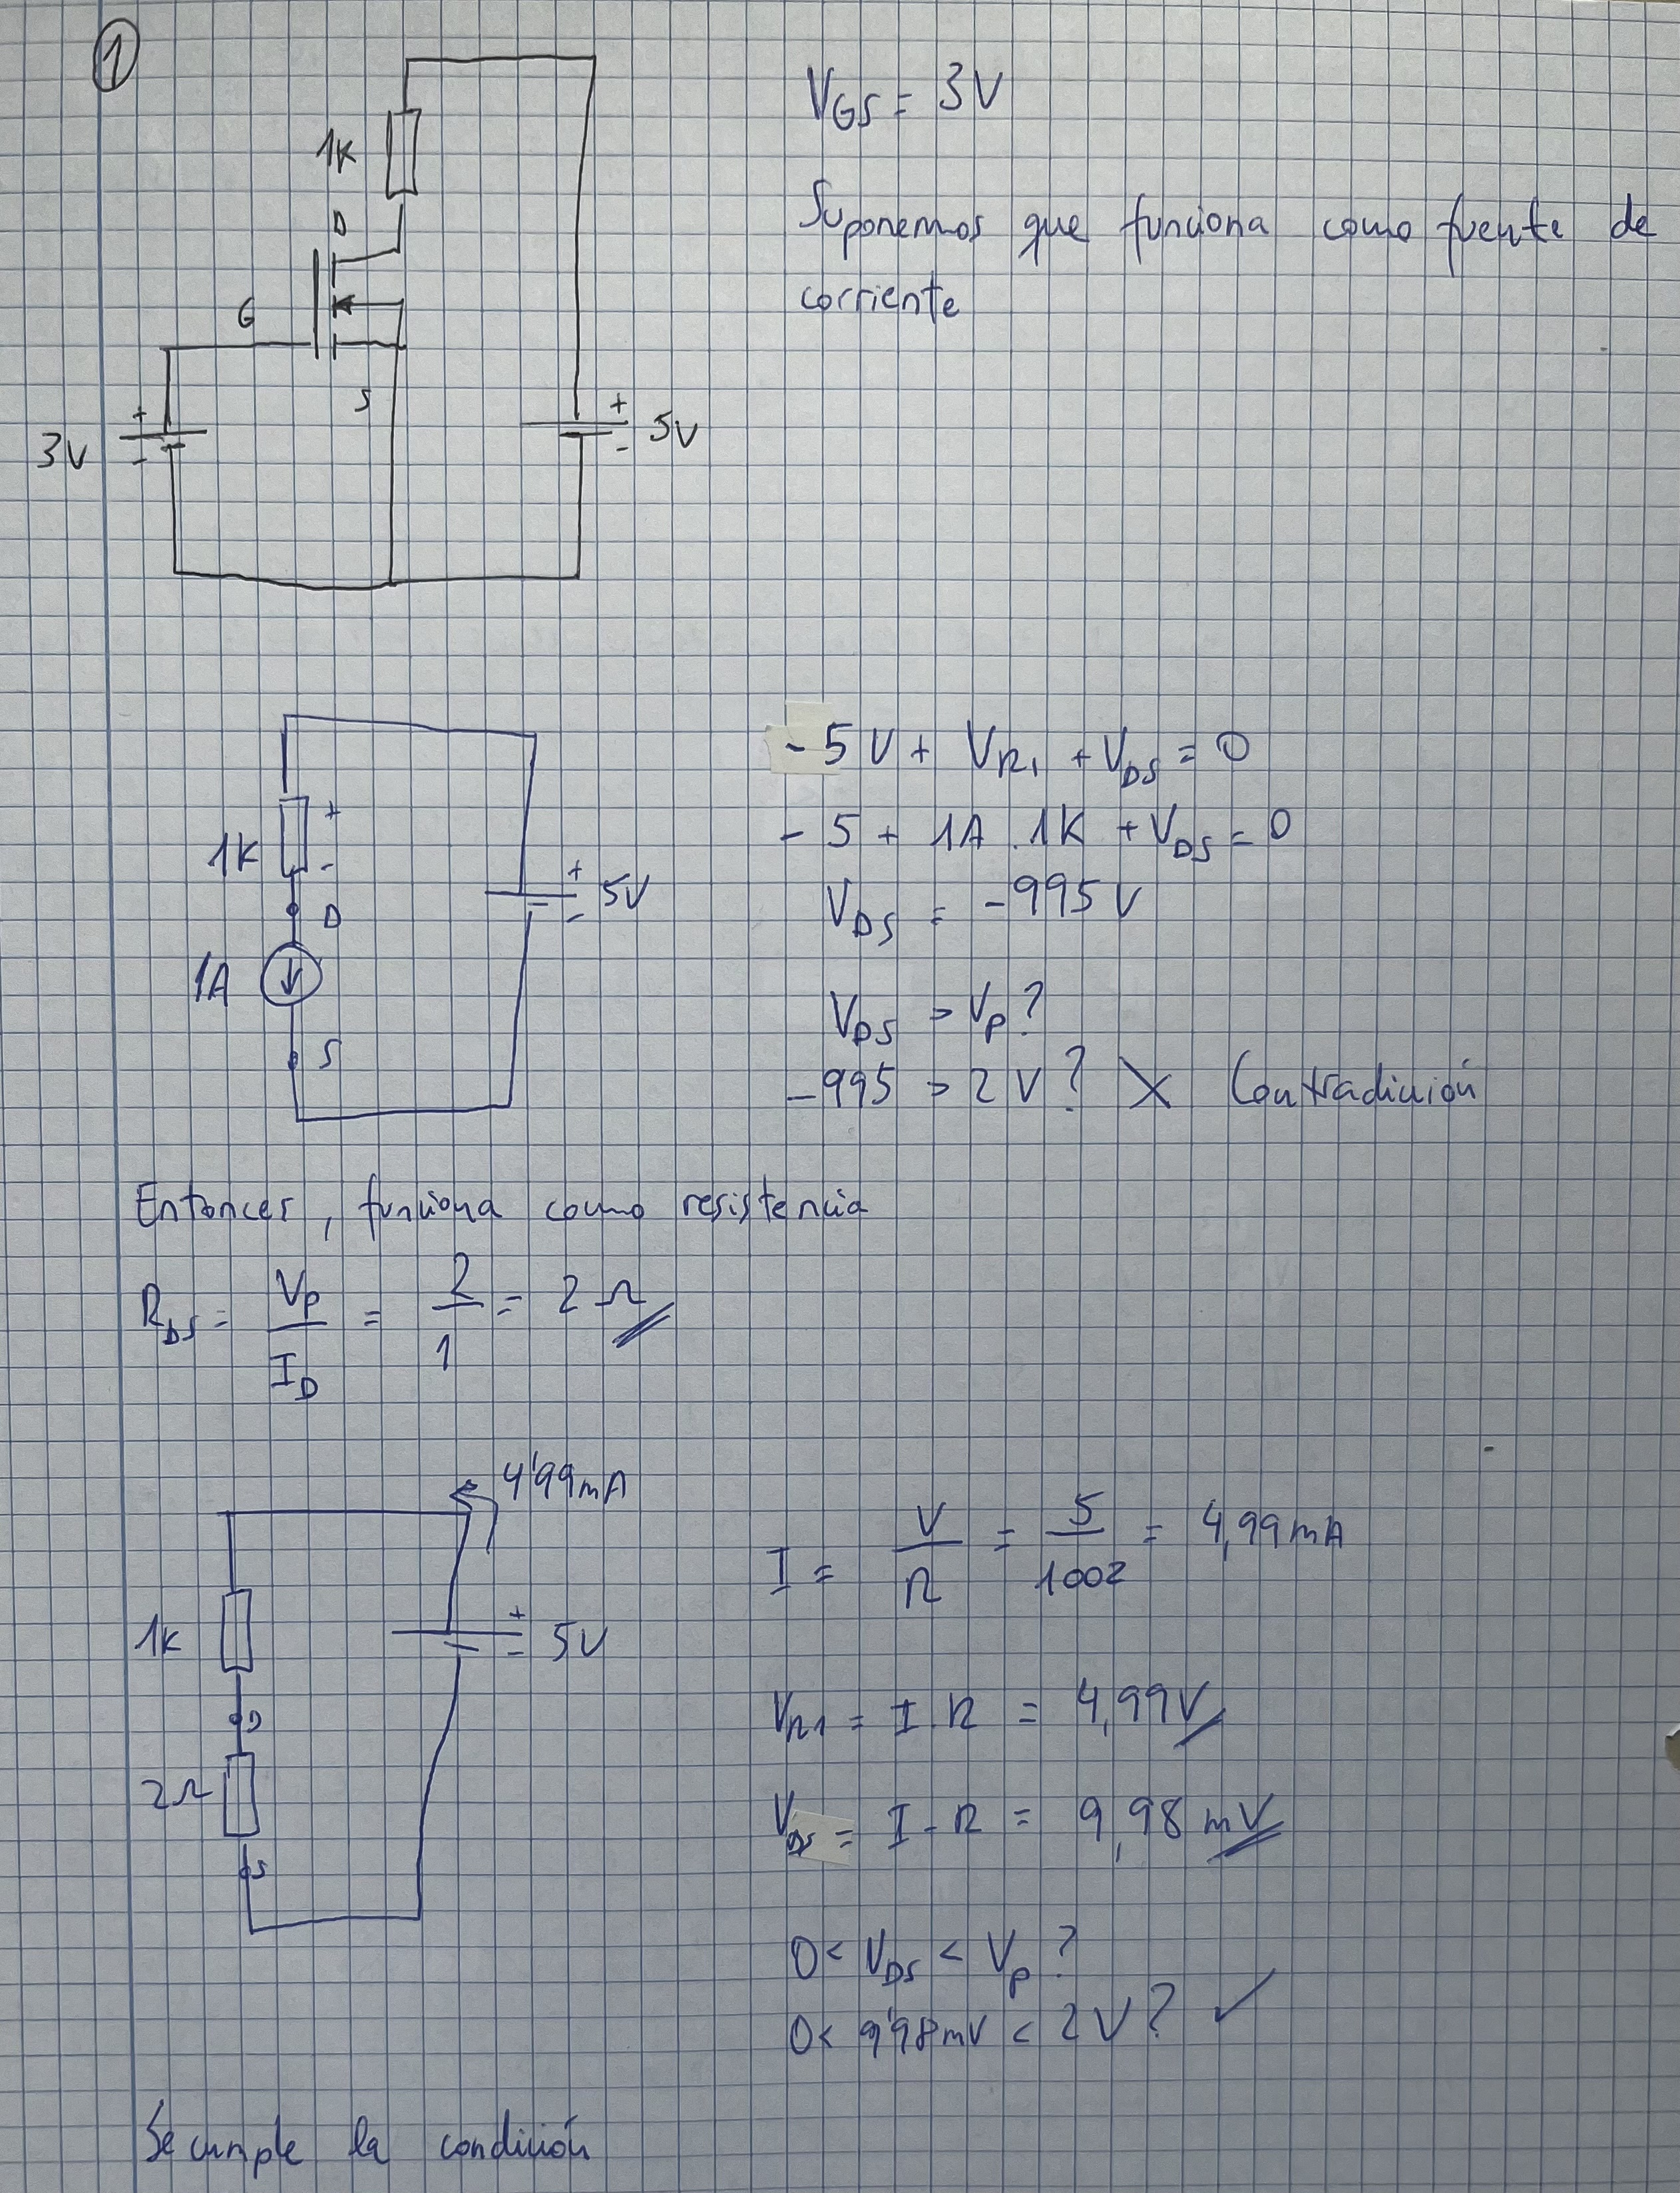 1
1K
D
G
S
3V
+
-
+
-
5V
V_GS = 3V
Suponemos que funciona como fuente de
corriente
1K
+
-
D
1A
S
+
-
5V
- 5V + V_R1 + V_DS = 0
- 5 + 1A . 1K + V_DS = 0
V_DS = -995 V
V_DS > V_P ?
-995 > 2 V ? X Contradición
Entonces, funciona como resistencia
R_DS = V_P / I_D = 2 / 1 = 2 Ω
4'99mA
1K
D
2Ω
S
+
-
5V
I = V / R = 5 / 1002 = 4,99 mA
V_R1 = I . R = 4,99V
V_DS = I . R = 9,98 mV
0 < V_DS < V_P ?
0 < 9'98mV < 2V ? ✓
Se cumple la condición